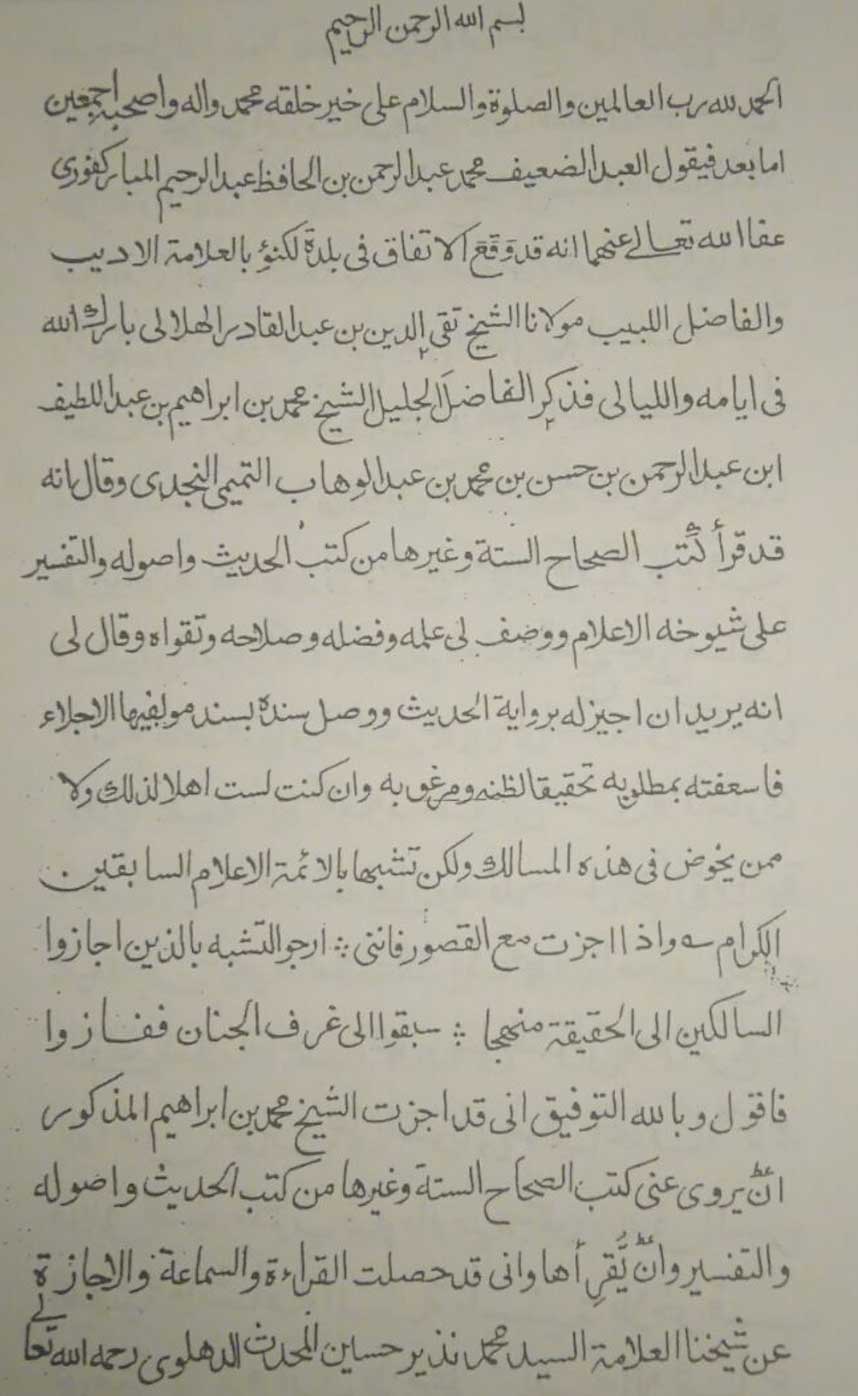 بسم الله الرحمن الرحيم
الحمد لله رب العالمين والصلوة والسلام على خير خلقه محمد واله واصحبه اجمعين
اما بعد فيقول العبد الضعيف محمد عبد الرحمن بن الحافظ عبد الرحيم المباركفورى
عفا الله تعالے عنهما انه قد وَقَعَ الاتفاق فى بلدة لكنؤ بالعلامة الاديب
والفاضل اللبيب مولانا الشيخ تقى الدين بن عبد القادر الهلالى بارك الله
فى ايامه والليالى فذكر الفاضلَ الجليل الشيخ محمد بن ابراهيم بن عبد اللطيف
ابن عبد الرحمن بن حسن بن محمد بن عبد الوهاب التميمى النجدى وقال انه
قد قرأ كُتب الصحاح الستة وغيرها من كتب الحديث واصوله والتفسير
على شيوخه الاعلام ووصف لى علمه وفضله وصلاحه وتقواه وقال لى
انه يريد ان اجيز له برواية الحديث ووصل سنده بسند مولفيها الاجلاء
فاسعفته بمطلوبه تحقيقا لظنه ومرغوبه وان كنت لست اهلا لذلك ولا
ممن يخوض فى هذه المسالك ولكن تشبها بالائمة الاعلام السابقين
الكرام ؎ واذا اجزت مع القصور فاننى ؞ ارجو التشبه بالذين اجازوا
السالكين الى الحقيقة منهجا ؞ سبقوا الى غرف الجنان ففازوا
فاقول وبالله التوفيق انى قد اجزت الشيخ محمد بن ابراهيم المذكور
انْ يروى عنى كتب الصحاح الستة وغيرها من كتب الحديث واصوله
والتفسير وانْ يُقرِأها وانى قد حصلت القراءة والسماعة والاجازة
عن شيخنا العلامة السيد محمد نذير حسين المحدث الدهلوى رحمه الله تعالے